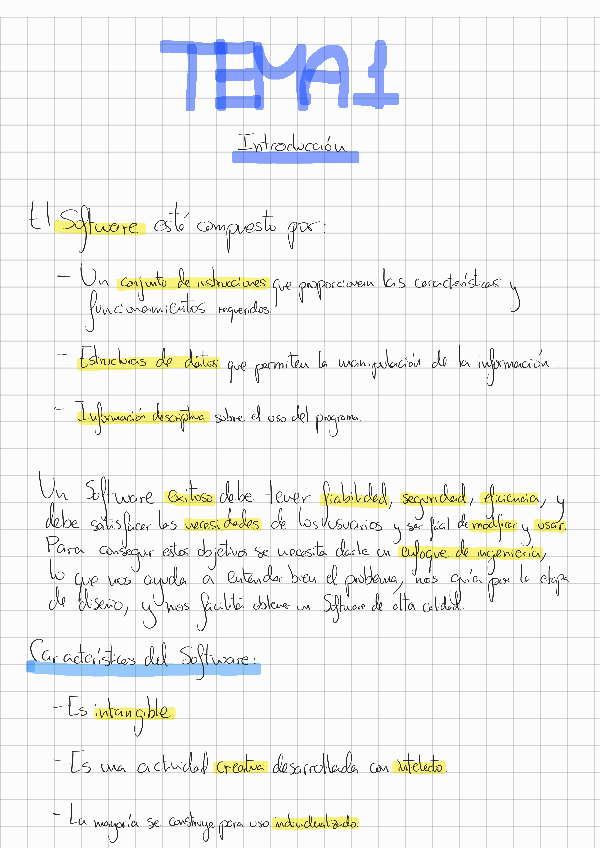 TEMA 1
Introducción
El Software esté compuesto por:
- Un conjunto de instrucciones que proporcionan las características y
funcionamientos requeridos.
- Estructuras de datos que permiten la manipulación de la información
- Información descriptiva sobre el uso del programa.
Un Software exitoso debe tener fiabilidad, seguridad, eficiencia, y
debe satisfacer las necesidades de los usuarios y ser fácil de modificar y usar.
Para conseguir estos objetivos se necesita darle un enfoque de ingeniería,
lo que nos ayuda a entender bien el problema, nos guía por la etapa
de diseño, y nos facilita obtener un Software de alta calidad.
Características del Software:
- Es intangible
- Es una actividad creativa desarrollada con intelecto.
- La mayoría se construye para uso individualizado.